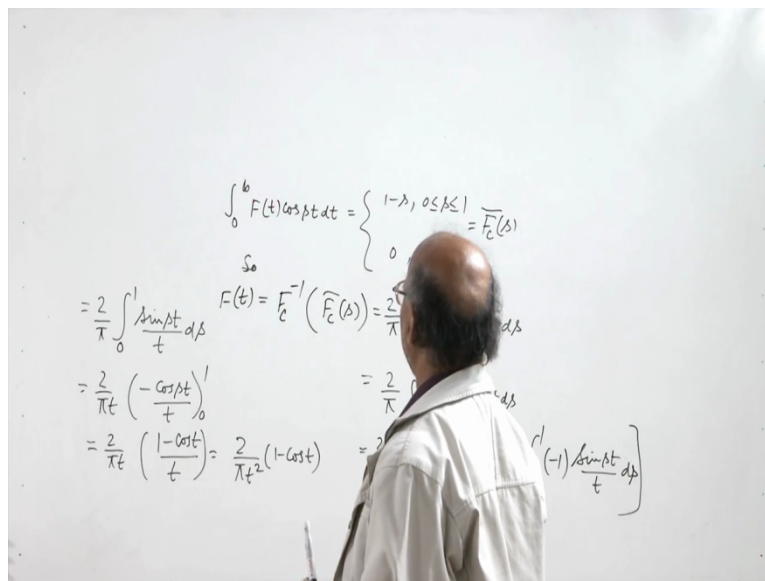 ∫₀^∞ F(t) cos st dt = { 1-s, 0≤s≤1
= F̄c(s)
0
So
F(t) = Fc⁻¹ (F̄c(s)) = 2/π ds
= 2/π ds
(-1) sin st / t ds ]
= 2/π ∫₀¹ sin st / t ds
= 2/πt (-cos st / t)₀¹
= 2/πt (1-cos t / t) = 2/πt² (1-cos t)